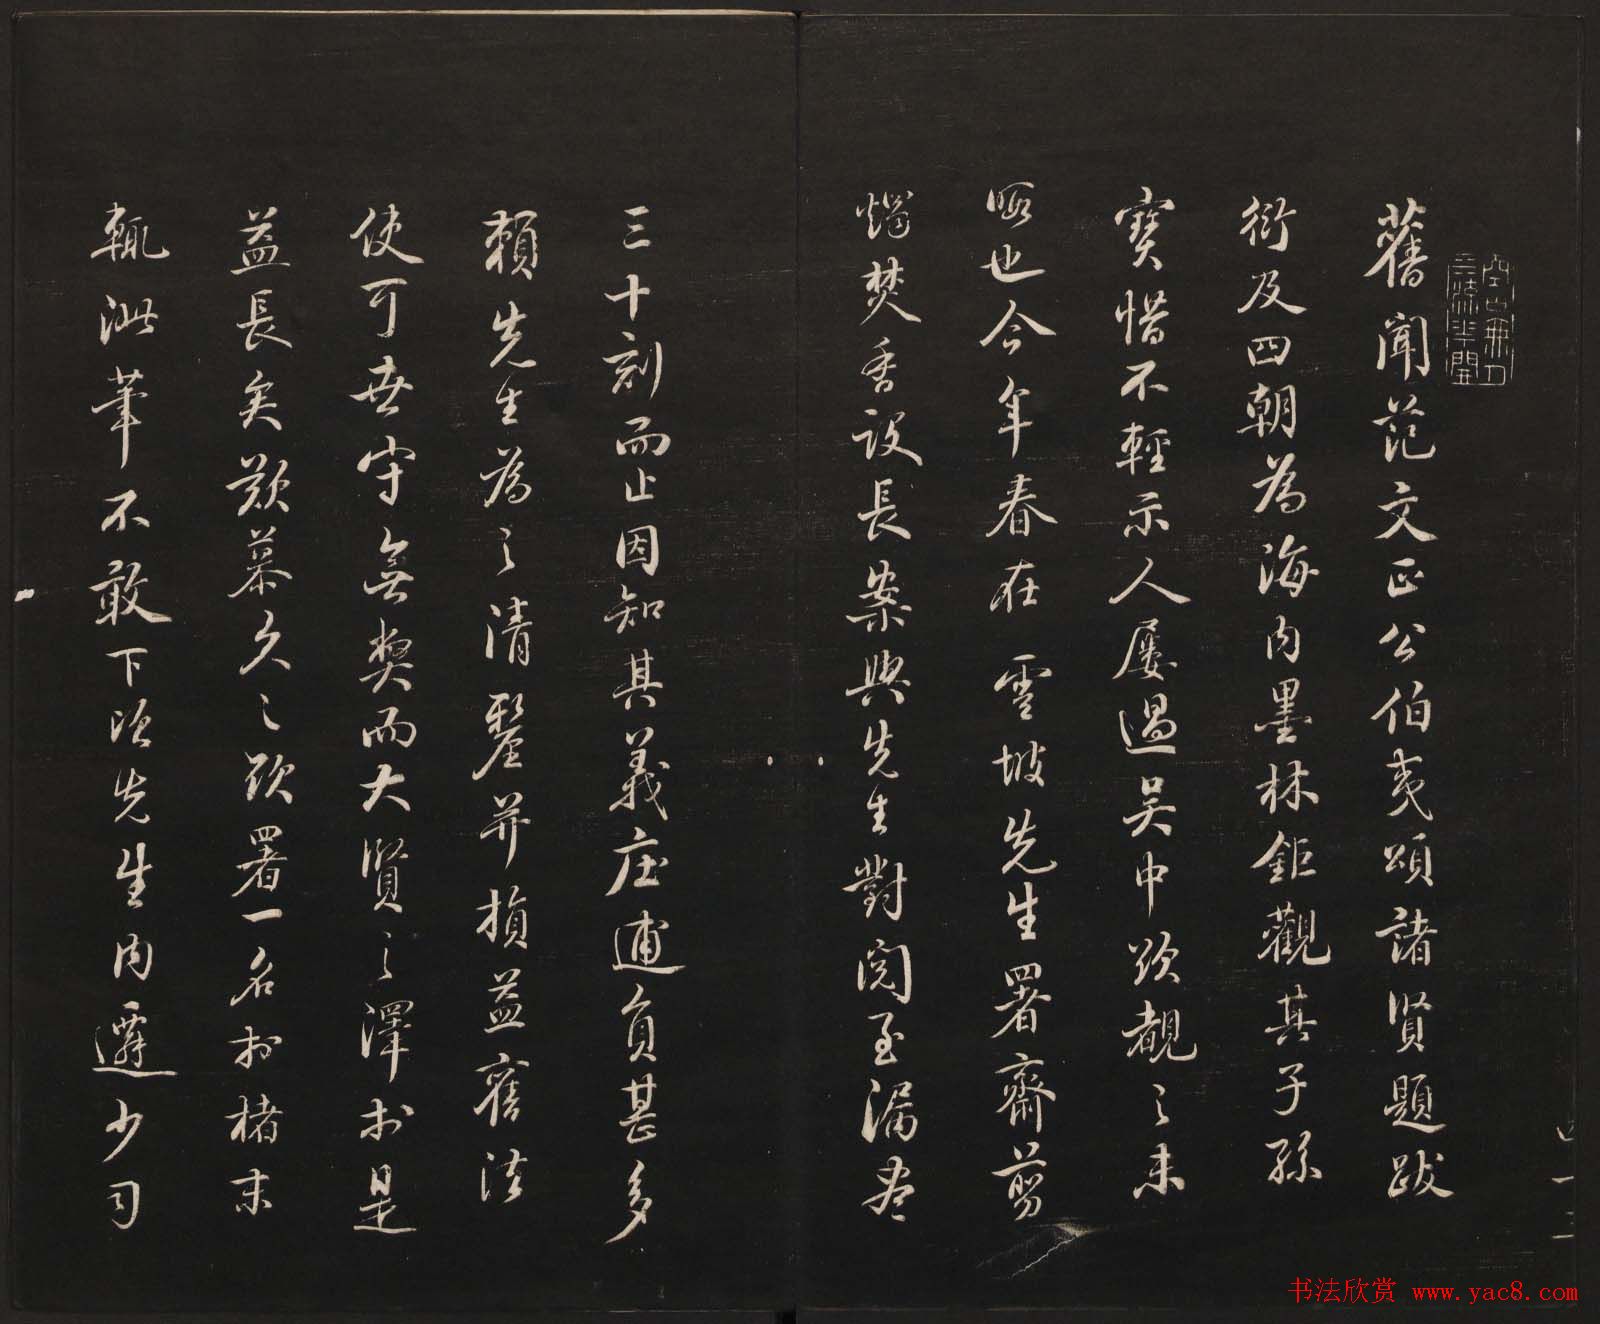 舊聞范文正公伯夷頌諸賢題跋
衍及四朝為海內墨林鉅觀其子孫
寶惜不輕示人屢過吳中欲覩之未
暇也今年春在雲坡先生署齋剪
燭焚香設長案與先生對閱至漏盡
三十刻而止因知其義庄逋負甚多
賴先生為之清釐并損益舊法
使可世守無獘而大賢之澤於是
益長矣歎慕久之欲署一名於楮末
輒泚筆不敢下洎先生內遷少司
书法欣赏 www.yac8.com